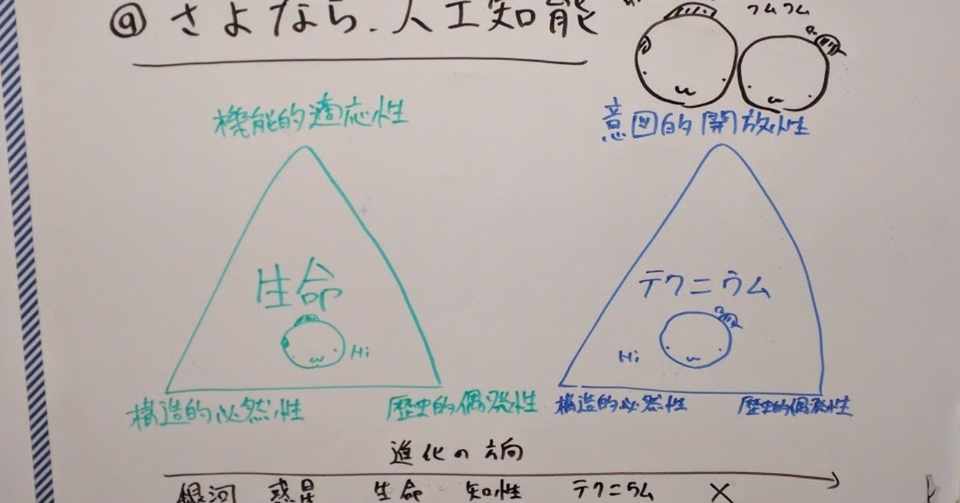 @ さよなら、人工知能
フムフム
機能的適応性
意図的開放性
生命
Hi
テクニウム
Hi
構造的必然性 歴史的偶発性
構造的必然性 歴史的偶発性
進化の方向
銀河 惑星 生命 知性 テクニウム ×